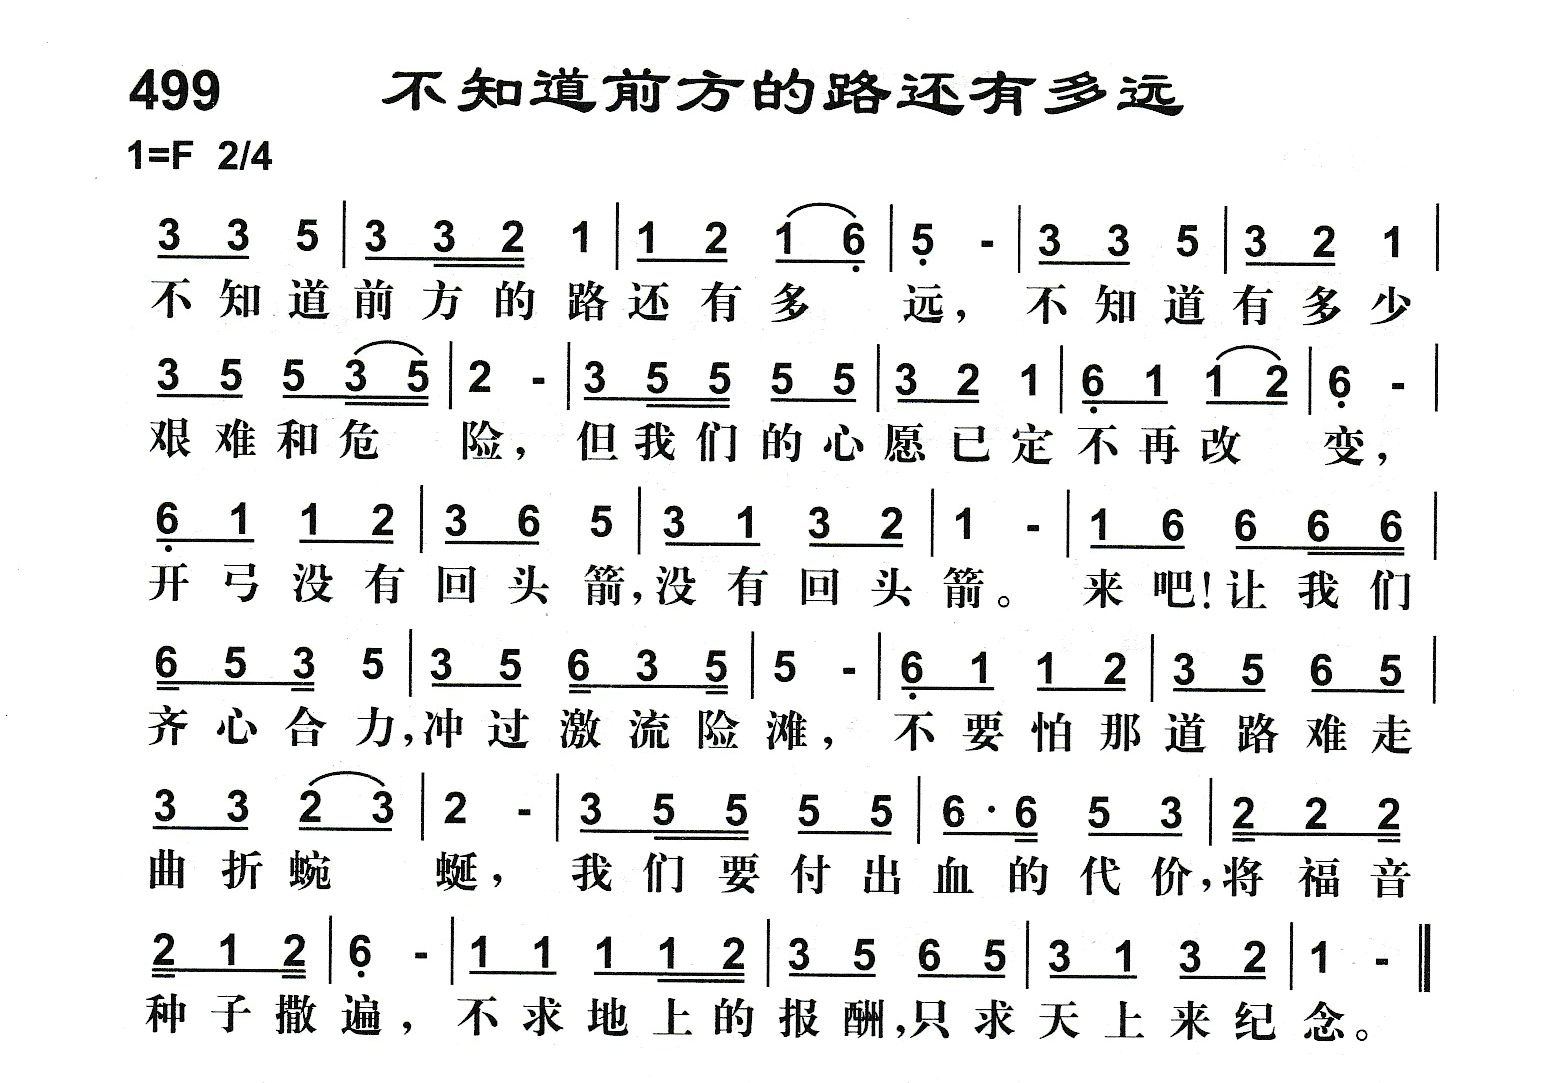 499 不知道前方的路还有多远
1=F 2/4
3 3 5 | 3 3 2 1 | 1 2 1 6 | 5 - | 3 3 5 | 3 2 1 |
不知道前方的路还有多远，不知道有多少
3 5 5 3 5 | 2 - | 3 5 5 5 5 | 3 2 1 | 6 1 1 2 | 6 - |
艰难和危险，但我们的心愿已定不再改变，
6 1 1 2 | 3 6 5 | 3 1 3 2 | 1 - | 1 6 6 6 6 |
开弓没有回头箭，没有回头箭。来吧！让我们
6 5 3 5 | 3 5 6 3 5 | 5 - | 6 1 1 2 | 3 5 6 5 |
齐心合力，冲过激流险滩，不要怕那道路难走
3 3 2 3 | 2 - | 3 5 5 5 5 | 6 · 6 5 3 | 2 2 2
曲折蜿蜒，我们要付出血的代价，将福音
2 1 2 | 6 - | 1 1 1 1 2 | 3 5 6 5 | 3 1 3 2 | 1 - ‖
种子撒遍，不求地上的报酬，只求天上来纪念。